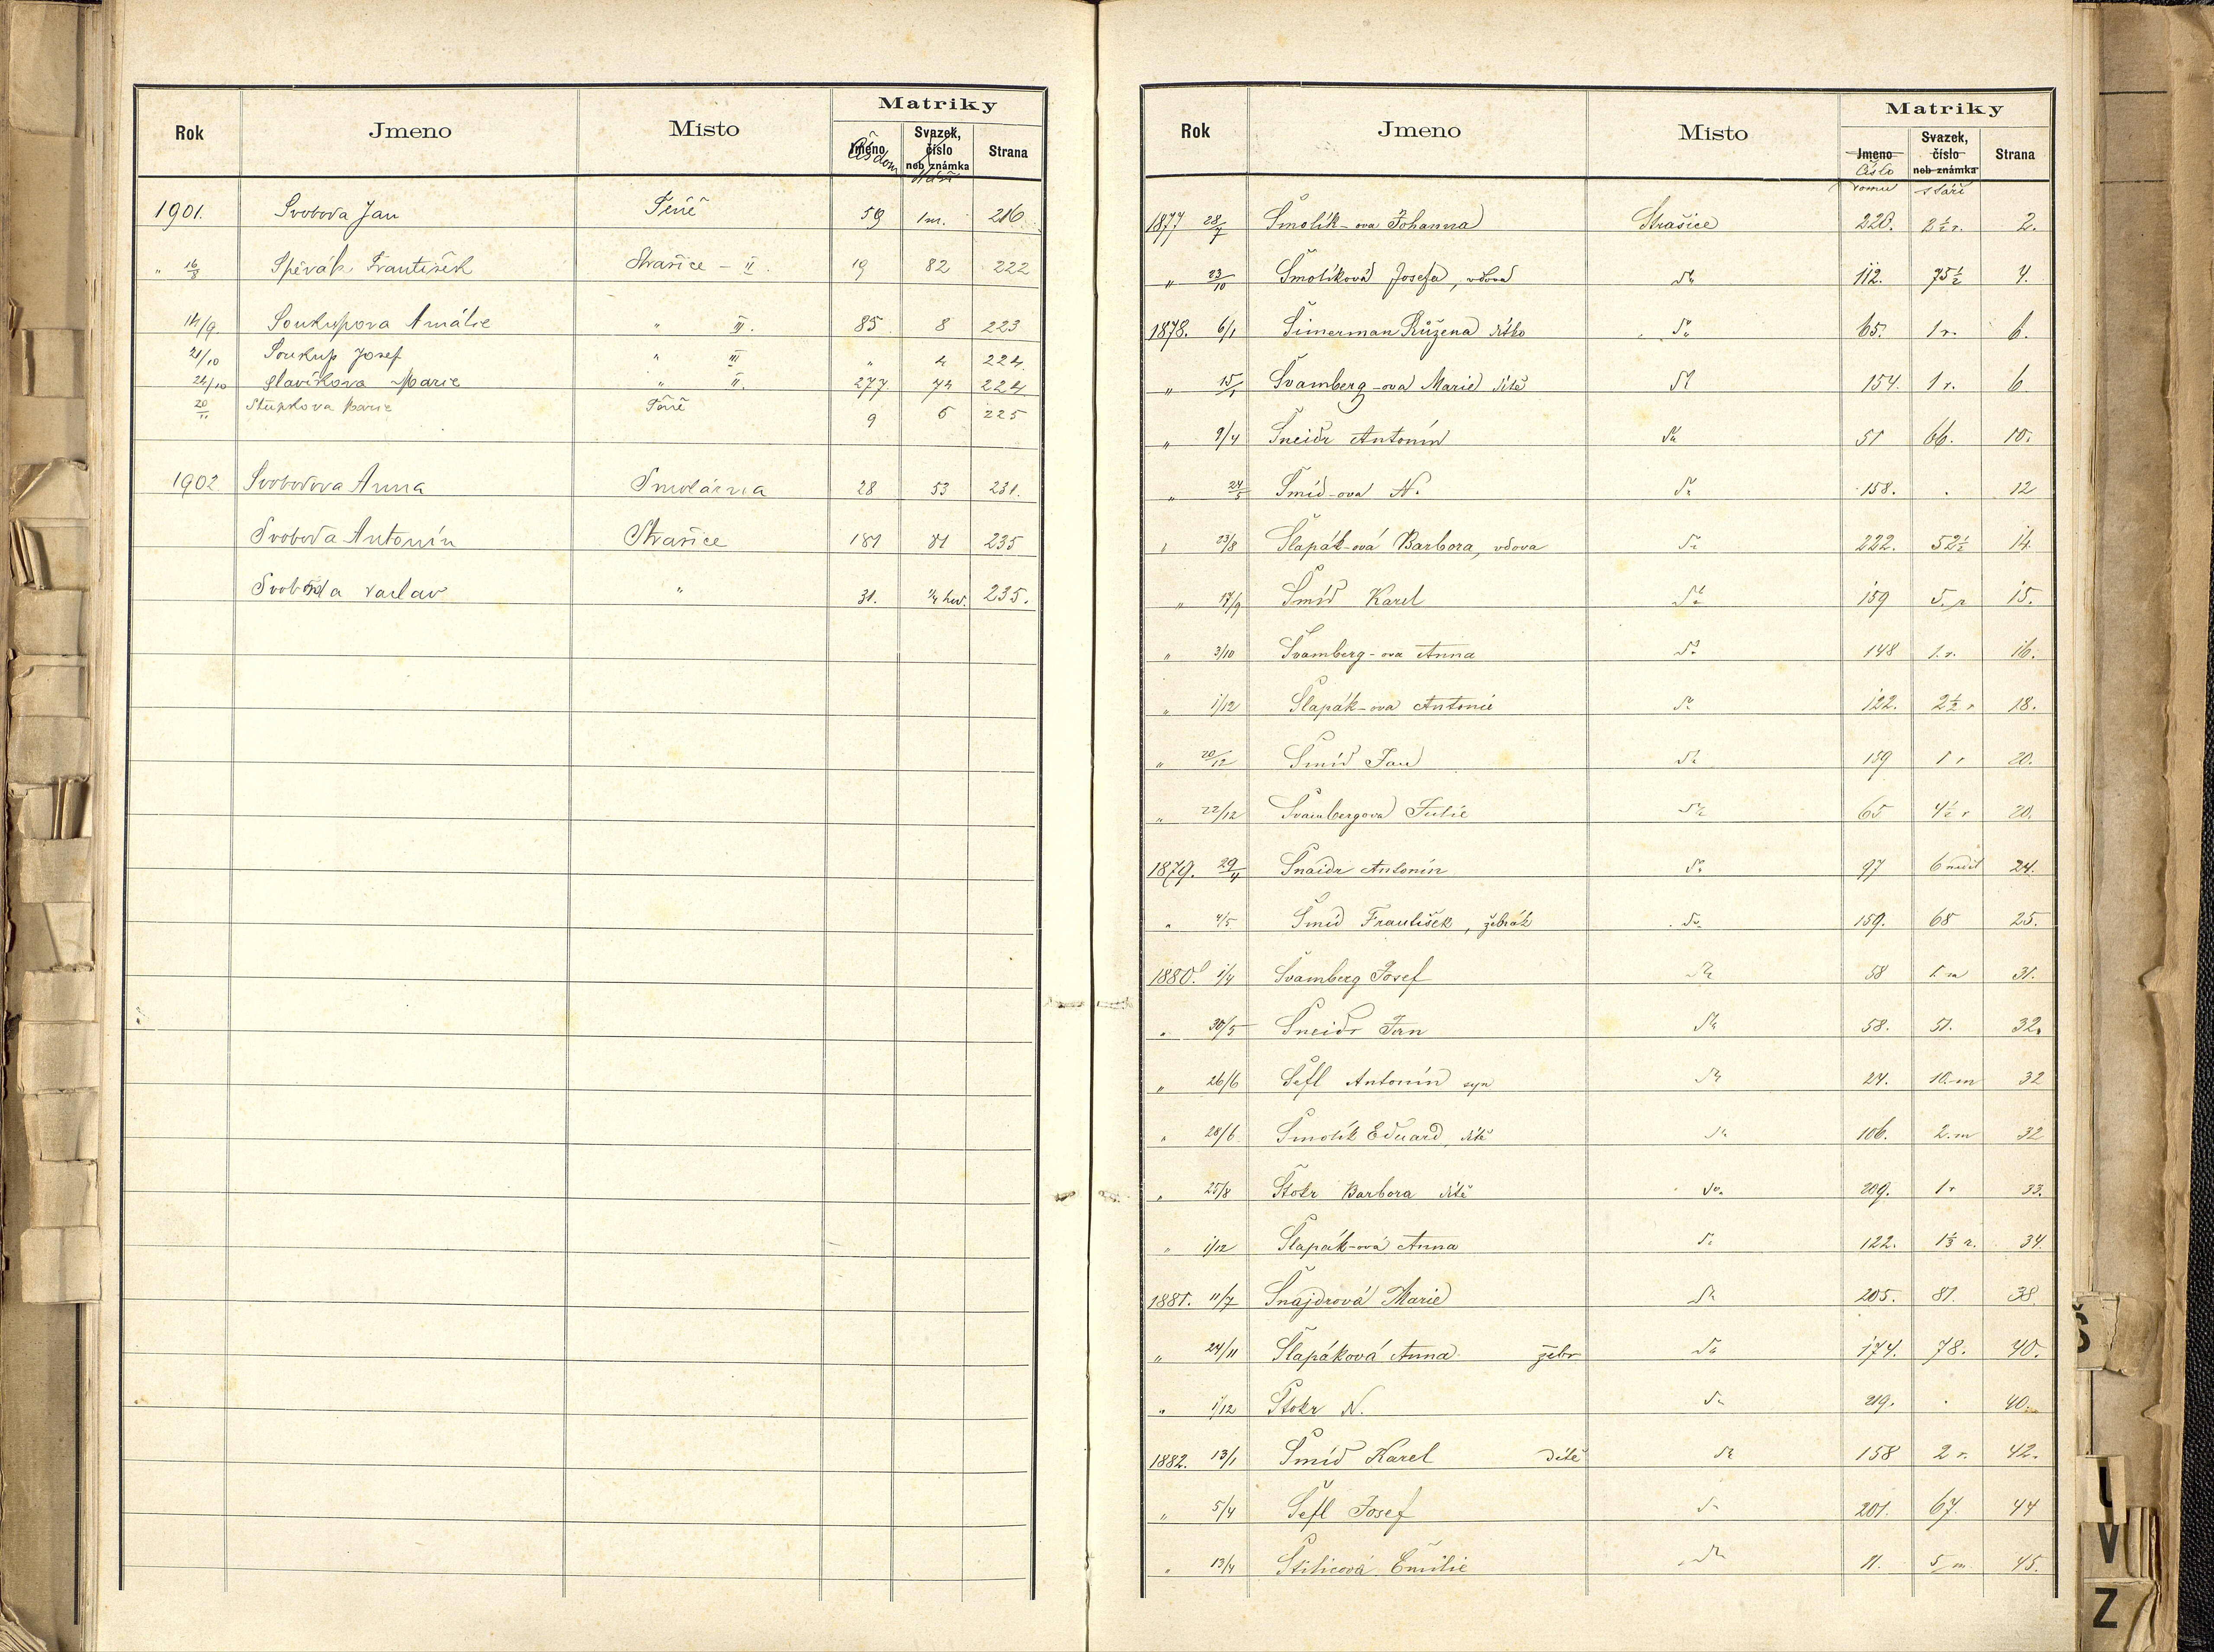 Rok Jmeno Místo Matriky
Jméno Svazek, číslo neb známka Strana
Čís dom Stáří
1901. Svoboda Jan Těně 59 1m. 216
" 16/8 Spěvák František Strašice - II. 19 82 222
14/9 Soukupova Amálie " III. 85 8 223
21/10 Soukup Josef " III " 4 224.
24/10 Slavíkova Marie " II. 277 74 224
20/11 Stupkova Marie Těně 9 6 225
1902 Svobodova Anna Smolárna 28 53 231.
Svoboda Antonín Strašice 181 81 235
Svoboda Vaclav " 31. 1/4 hod. 235.
Rok Jmeno Místo Matriky
Jmeno Svazek, číslo neb známka Strana
Číslo domu stáří
1877 28/7 Šmolík-ova Johanna Strašice 220. 2 1/2 r. 2.
" 23/10 Šmolíková Josefa, vdova dto 112. 75 1/2 4.
1878. 6/1 Šimerman Růžena dítko dto 65. 1 r. 6.
" 15/1 Švamberg-ova Marie dítě dto 154. 1 r. 6
" 9/4 Šneidr Antonín dto 51 66. 10.
" 24/5 Šmíd-ova N. dto 158. . 12
" 23/8 Šlapák-ová Barbora, vdova dto 222. 52 1/2 14.
" 17/9 Šmíd Karel dto 159 5. r 15.
" 3/10 Švamberg-ova Anna dto 148 1. r. 16.
" 1/12 Šlapák-ova Antonie dto 122. 2 1/2 r 18.
" 20/12 Šmíd Jan dto 159 1 r 20.
" 22/12 Švambergova Julie dto 65 4 1/2 r 20.
1879. 29/4 Šnaidr Antonín do 97 6 neděl 24.
" 4/5 Šmíd František, žebrák do. 159. 68 25.
1880. 1/4 Švamberg Josef dto 58 1. m 31.
" 30/5 Šneidr Jan dto 58. 51. 32.
" 26/6 Šefl Antonín syn dto 24. 10. m 32
" 28/6 Šmolík Eduard, dítě dto 106. 2. m 32
" 25/8 Štokr Barbora dítě do. 209. 1 r 33.
" 1/12 Šlapák-ová Anna dto 122. 1 1/3 r. 34.
1881. 11/7 Šnajdrová Marie dto 205. 81. 38.
" 24/11 Šlapáková Anna žebr dto 174. 78. 40.
" 1/12 Štokr N. dto 219. . 40.
1882. 13/1 Šmíd Karel dítě dto 158 2 r. 42.
" 5/4 Šefl Josef dto 201. 67. 44
" 13/4 Štilicová Emilie dto 11. 5 m. 45.
Š
U
V
Z